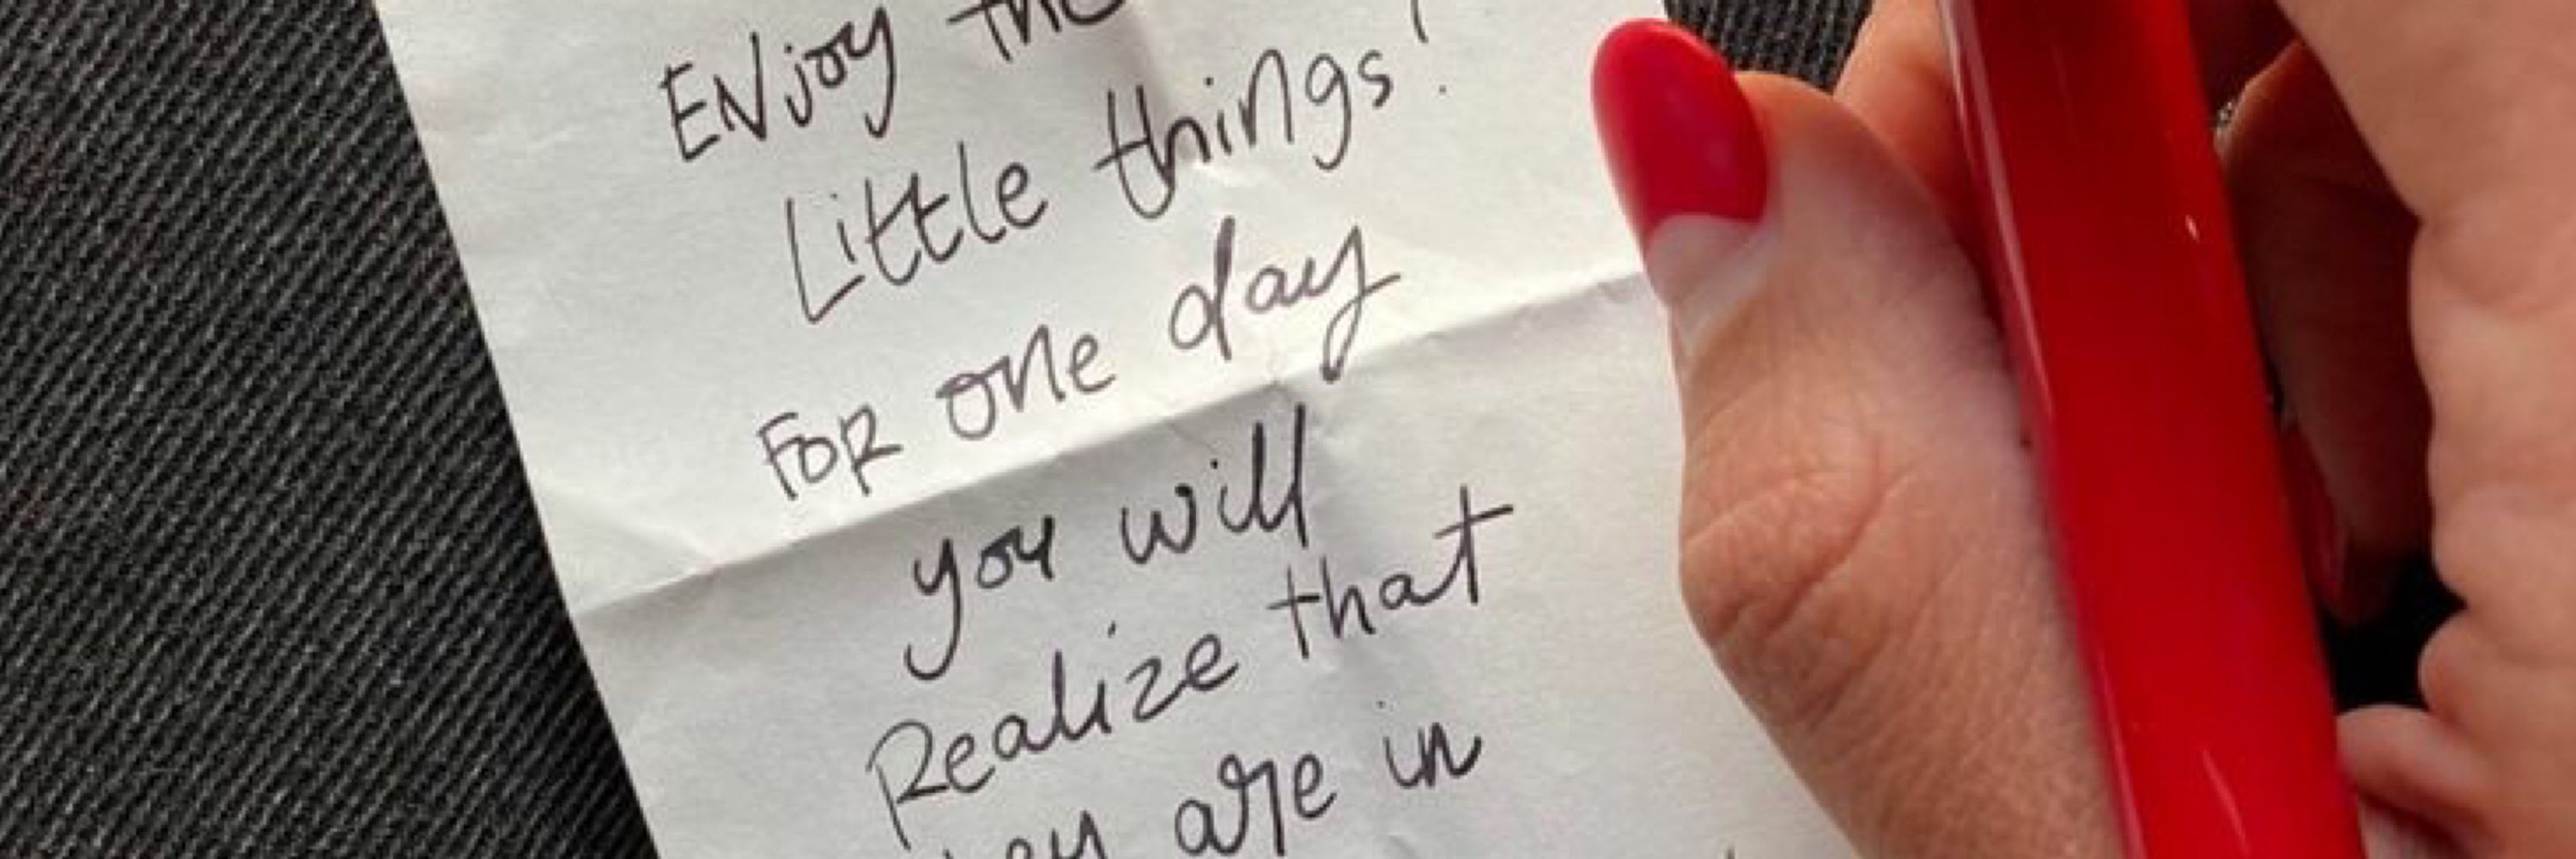 ENjoy the
Little things!
FOR one day
you will
Realize that
they are in